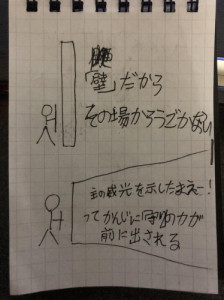 「壁」だから
その場からうごかない
主の威光を示したまえー!
ってかんじに「守り」の力が
前に出される